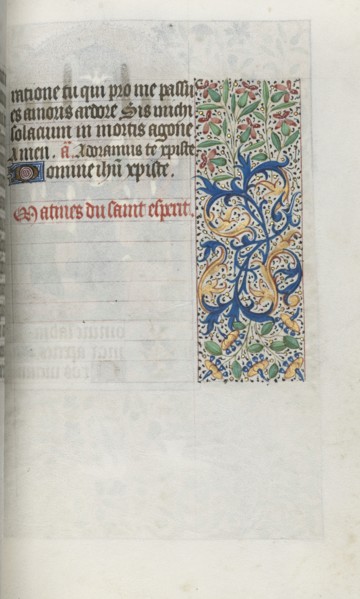 ratione tu qui pro me passu
es amoris ardore Sis michi
solacium in mortis agone
Amen. a. Adoramus te xpiste
Domine ihu xpiste.
Matines du saint esperit.